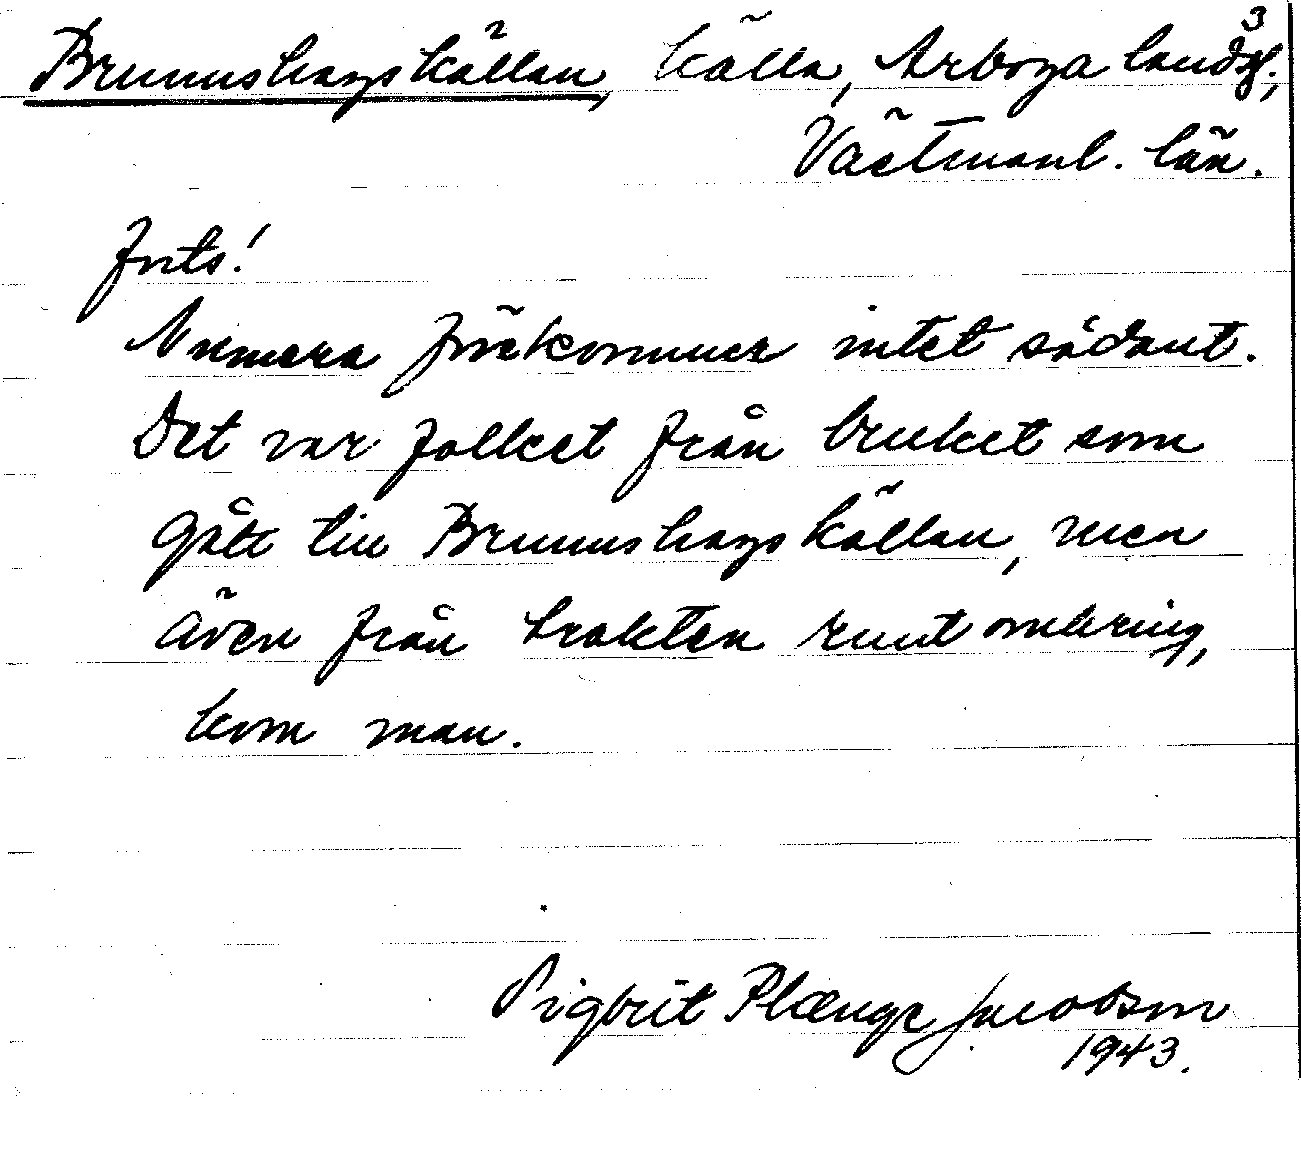 3
Brunnshagskällan, källa, Arboga landsf.,
Västmanl. län.
forts!
Numera förekommer intet sådant.
Det var folket från bruket som
gått till Brunnshagskällan, men
även från trakten runt omkring,
kom man.
Sigbrit Plænge Jacobson
1943.